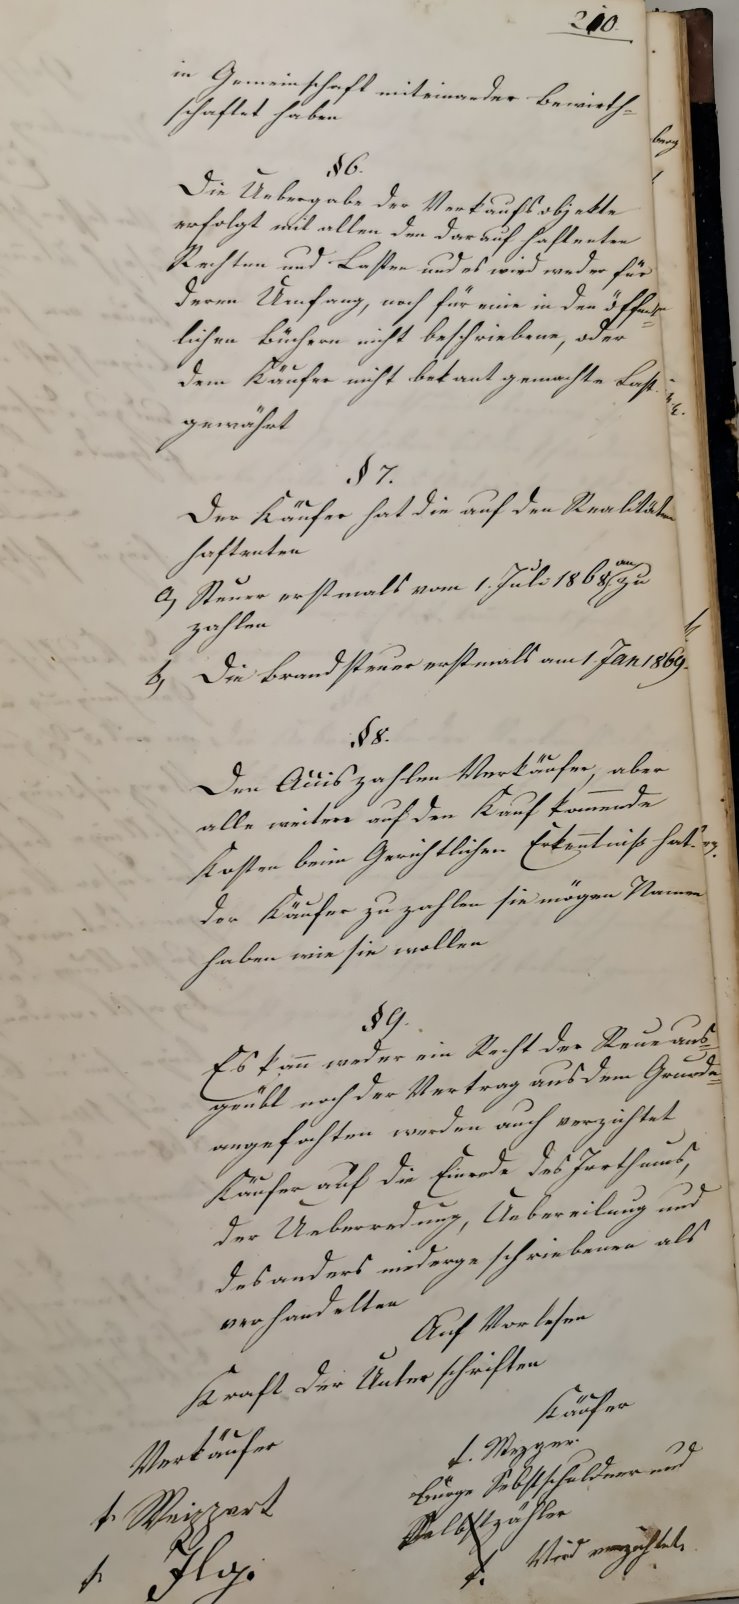 210.
in Gemeinschaft miteinander bewirth=
schaftet haben
§ 6.
Die Uebergabe der Verkaufsobjekte
erfolgt mit allen den darauf haftenten
Rechten und Lasten und es wird weder für
deren Umfang, noch für eine in den öffent=
lichen Büchern nicht beschriebene, oder
dem Käufer nicht bekant gemachte Last
gewährt
§ 7.
Der Käufer hat die auf den Realitäten
haftenten
a, Steuer erstmals vom 1. Juli 1868 an zu
zahlen
b, Die Brandsteuer erstmals am 1. Jan 1869.
§ 8.
Den Acciis zahlen Verkäufer, aber
alle weitere auf den Kauf kom̅ende
Kosten beim Gerichtlichen Erken̅tniß hat
der Käufer zu zahlen sie mögen Namen
haben wie sie wollen
§ 9.
Es kan̅ weder ein Recht der Reue aus=
geübt noch der Vertrag aus dem Grunde
angefochten werden auch verzichtet
Käufer auf die Einrede des Irrthums,
der Ueberredung, Uebereilung und
des anders niedergeschriebenen als
verhandelten
Auf Vorlesen
Kraft der Unterschriften
Verkäufer
t. Weippert
t. Ilg.
Käufer
t. Mezger
Bürge Selbstschuldner und
Selbstzähler
t. Wird verzichtet.